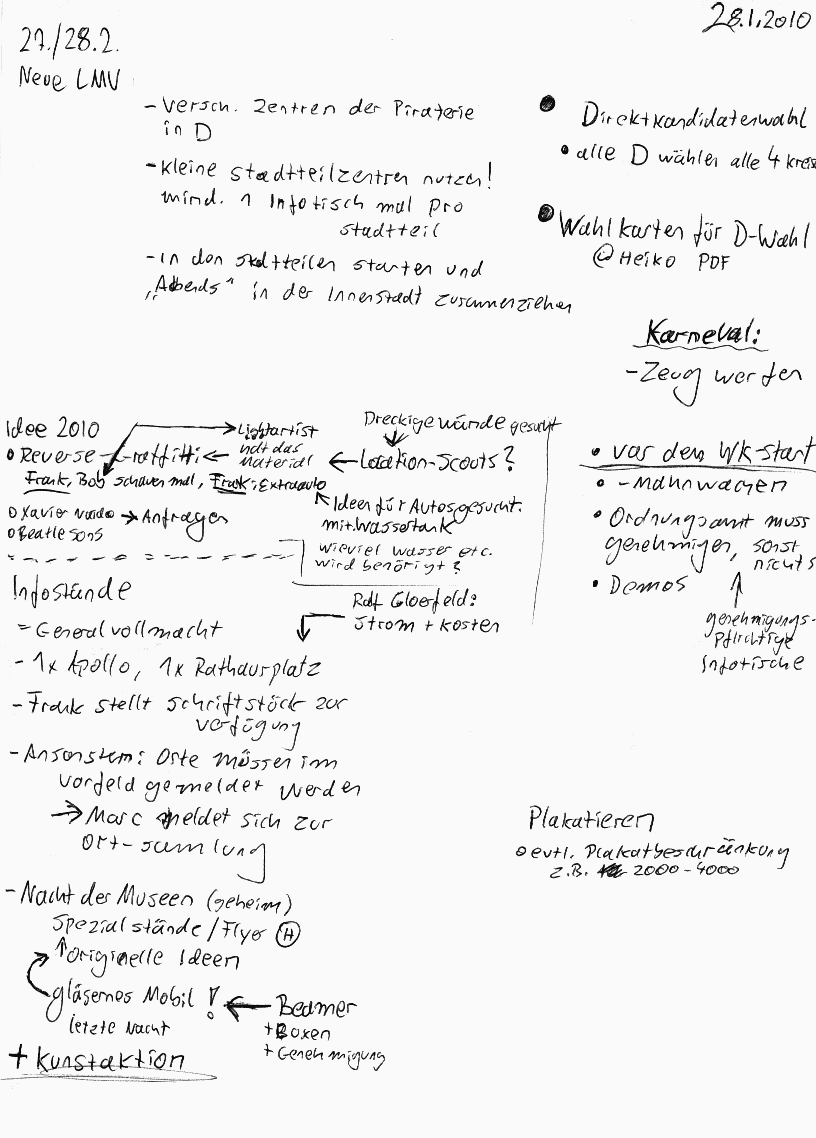 28.1.2010
27./28.2.
Neue LMV
- Versch. Zentren der Piraterie
in D
- kleine Stadtteilzentren nutzen!
mind. 1 Infotisch mal pro
Stadtteil
- in den Stadtteilen starten und
„Abends" in der Innenstadt zusammenziehen
Direktkandidatenwahl
• alle D wähler alle 4 kreis
Wahlkarten für D-Wahl
@Heiko PDF
Karneval:
- Zeug werfen
Idee 2010
Reverse-Graffitti
Lightartist
hat das
Material
Dreckige wände gesucht
Location-Scouts?
Frank, Bob schauen mal, Frank: Extraauto
Xavier Anfragen
Beatlesons
Ideen für Autos gesucht.
mit Wassertank
wieviel Wasser etc.
wird benötigt?
• vor dem WK-Start
• - Mahnwachen
• Ordnungsamt muss
genehmigen, sonst
nichts
• Demos
genehmigungs-
pflichtige
Infotische
Infostände
= Generalvollmacht
Ralf Gloerfeld:
Strom + kosten
- 1x Apollo, 1x Rathausplatz
- Frank stellt schriftstück zur
verfügung
- Ansonsten: Orte müssen im
Vorfeld gemeldet werden
→ Marc meldet sich zur
Ort-samlung
Plakatieren
evtl. Plakatbeschränkung
z.B. 2000-4000
- Nacht der Museen (geheim)
Spezialstände/Flyer (H)
↑originelle Ideen
gläsernes Mobil! ← Beamer
letzte Nacht
+ Boxen
+ Genehmigung
+ Kunstaktion